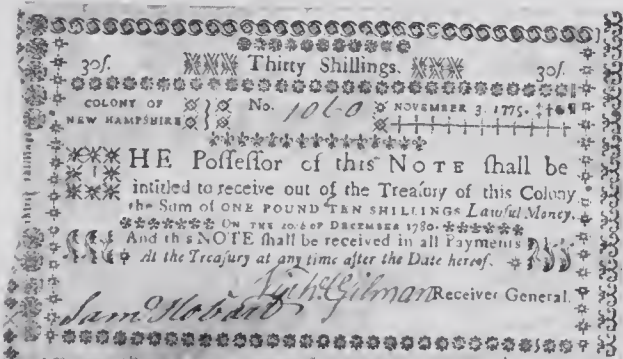 30ſ. Thirty Shillings. 30ſ.
COLONY OF
NEW HAMPSHIRE
No. 1060
NOVEMBER 3. 1775.
THE Poſſeſſor of this NOTE ſhall be
intitled to receive out of the Treaſury of this Colony
the Sum of ONE POUND TEN SHILLINGS Lawful Money.
ON THE 20th OF DECEMBER 1780.
And this NOTE ſhall be received in all Payments
At the Treaſury at any time after the Date hereof.
Nichs Gilman Receiver General.
Samo Hobart
thirty shillings